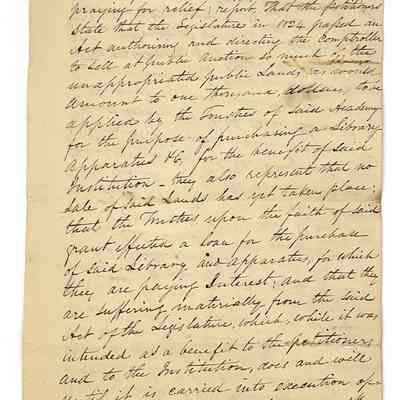 praying for relief; report that the petitioners
state that the Legislature in 1824 passed an
Act authorising and directing the Comptroller
to sell at public Auction so much of the
unappropriated public Lands as would
Amount to one thousand dollars, to be
applied by the Trustees of said Academy
for the purpose of purchasing a Library
Apparatus &c, for the benefit of said
Institution - they also represent that no
Sale of said Lands has yet taken place;
that the Trustees upon the faith of said
grant effected a loan for the purchase
of said Library and Apparatus, for which
they are paying Interest; and that they
are suffering materially from the said
Act of the Legislature, which, while it was
intended as a benefit to the petitioners
and to the Institution, does and will
it is carried into execution op-